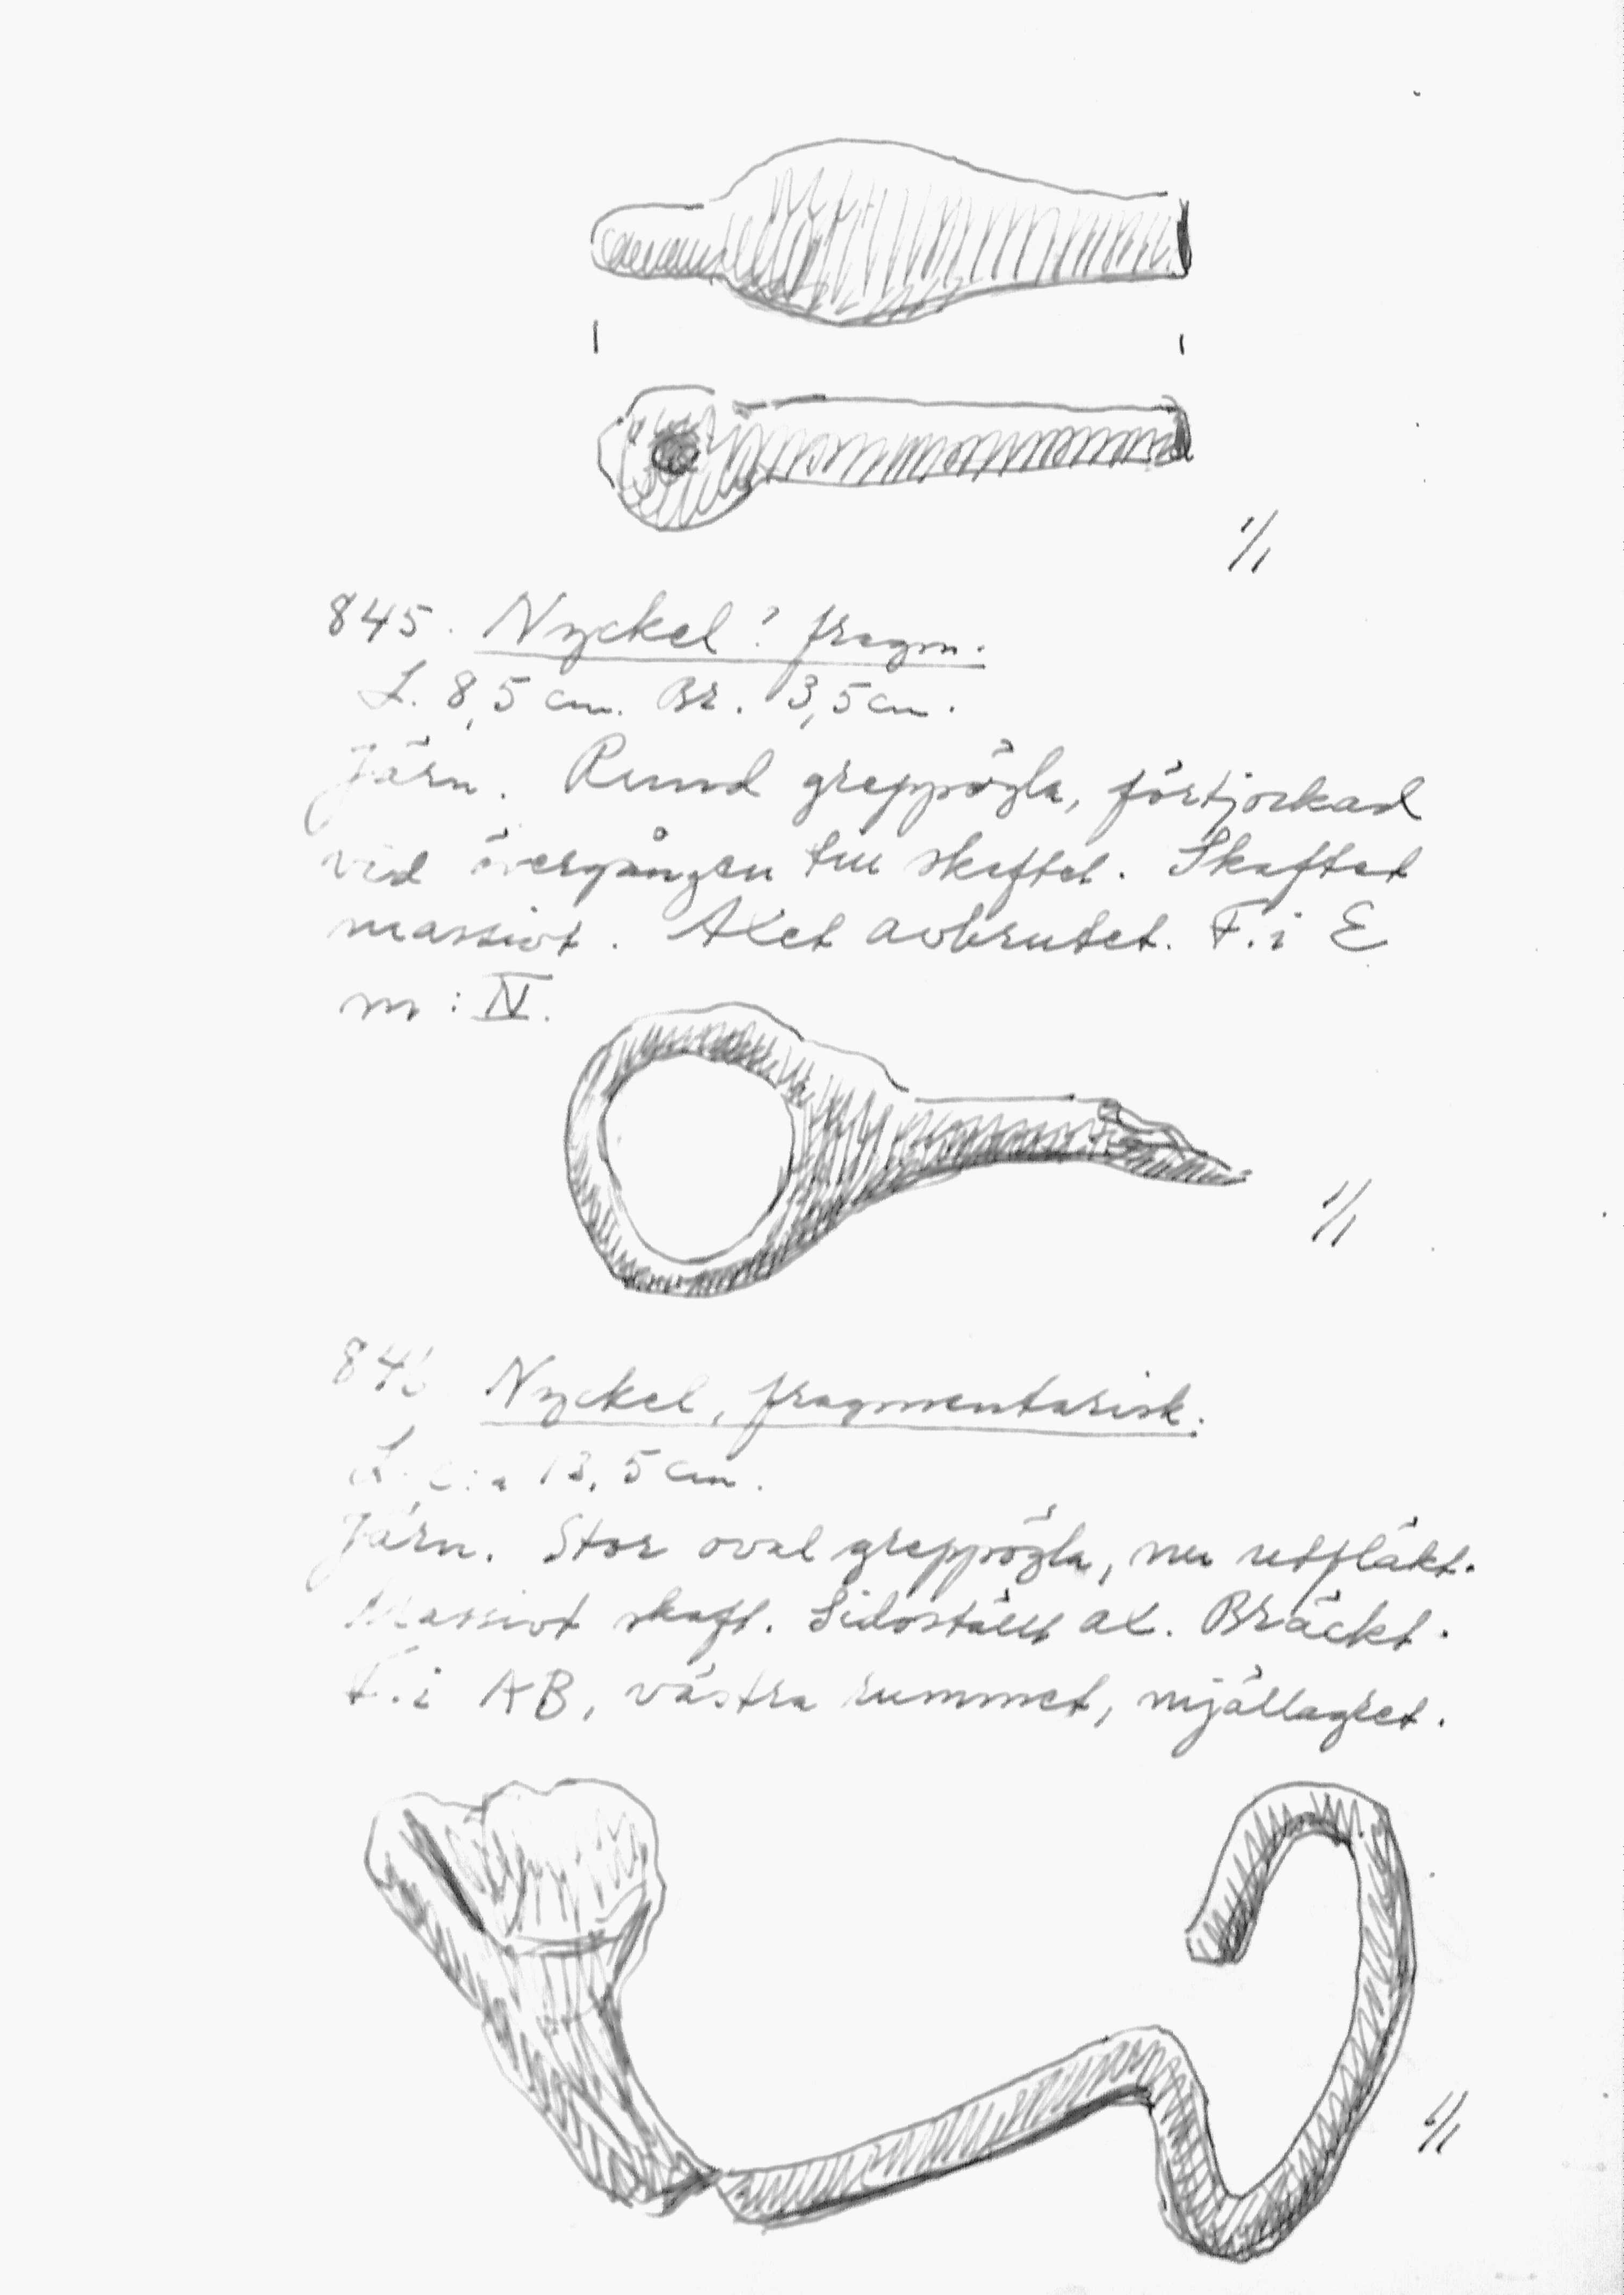 1/1
845. Nyckel? fragm.
L. 8,5 cm. Br. 3,5 cm.
Järn. Rund greppögla, förtjockad
vid övergången till skaftet. Skaftet
massivt. Axet avbrutet. F. i E
m: IV.
1/1
846 Nyckel, fragmentarisk.
L. c:a 13,5 cm.
Järn. Stor oval greppögla, nu utfläkt.
Massivt skaft. Sidoställt ax. Bräckt.
F. i AB, västra rummet, mjällagret.
1/1